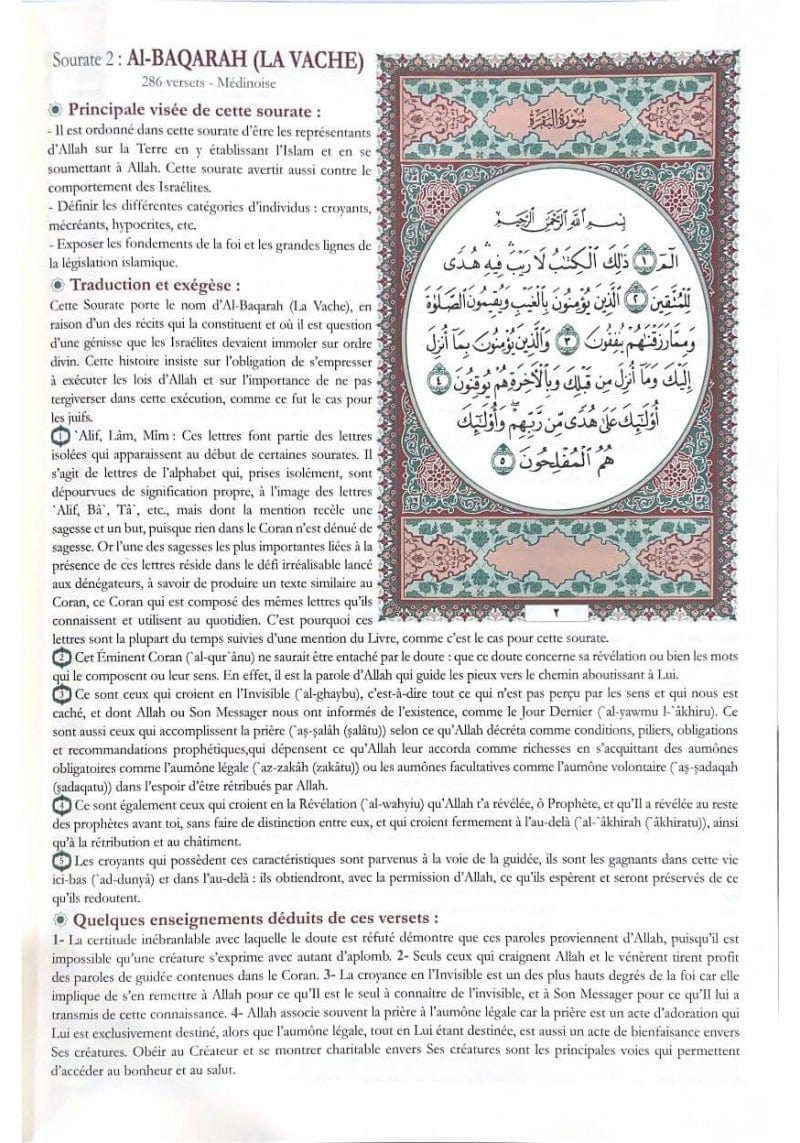 Sourate 2 : Al-BAQARAH (LA VACHE)
286 versets - Médinoise
Principale visée de cette sourate :
- Il est ordonné dans cette sourate d'être les représentants
d'Allah sur la Terre en y établissant l'Islam et en se
soumettant à Allah. Cette sourate avertit aussi contre le
comportement des Israélites.
- Définir les différentes catégories d'individus : croyants,
mécréants, hypocrites, etc.
- Exposer les fondements de la foi et les grandes lignes de
la législation islamique.
Traduction et exégèse :
Cette Sourate porte le nom d'Al-Baqarah (La Vache), en
raison d'un des récits qui la constituent et où il est question
d'une génisse que les Israélites devaient immoler sur ordre
divin. Cette histoire insiste sur l'obligation de s'empresser
à exécuter les lois d'Allah et sur l'importance de ne pas
tergiverser dans cette exécution, comme ce fut le cas pour
les juifs.
1 `Alif, Lâm, Mîm : Ces lettres font partie des lettres
isolées qui apparaissent au début de certaines sourates. Il
s'agit de lettres de l'alphabet qui, prises isolément, sont
dépourvues de signification propre, à l'image des lettres
`Alif, Bâ`, Tâ`, etc., mais dont la mention recèle une
sagesse et un but, puisque rien dans le Coran n'est dénué de
sagesse. Or l'une des sagesses les plus importantes liées à la
présence de ces lettres réside dans le défi irréalisable lancé
aux dénégateurs, à savoir de produire un texte similaire au
Coran, ce Coran qui est composé des mêmes lettres qu'ils
connaissent et utilisent au quotidien. C'est pourquoi ces
lettres sont la plupart du temps suivies d'une mention du Livre, comme c'est le cas pour cette sourate.
سُورَةُ البَقَرَةِ
بِسْمِ اللَّهِ الرَّحْمَٰنِ الرَّحِيمِ
الٓمٓ ١ ذَٰلِكَ ٱلْكِتَٰبُ لَا رَيْبَۛ فِيهِۛ هُدًى
لِّلْمُتَّقِينَ ٢ ٱلَّذِينَ يُؤْمِنُونَ بِٱلْغَيْبِ وَيُقِيمُونَ ٱلصَّلَوٰةَ
وَمِمَّا رَزَقْنَٰهُمْ يُنفِقُونَ ٣ وَٱلَّذِينَ يُؤْمِنُونَ بِمَآ أُنزِلَ
إِلَيْكَ وَمَآ أُنزِلَ مِن قَبْلِكَ وَبِٱلْءَاخِرَةِ هُمْ يُوقِنُونَ ٤
أُو۟لَٰٓئِكَ عَلَىٰ هُدًى مِّن رَّبِّهِمْۖ وَأُو۟لَٰٓئِكَ
هُمُ ٱلْمُفْلِحُونَ ٥
٢
2 Cet Éminent Coran (`al-qur`ânu) ne saurait être entaché par le doute : que ce doute concerne sa révélation ou bien les mots
qui le composent ou leur sens. En effet, il est la parole d'Allah qui guide les pieux vers le chemin aboutissant à Lui.
3 Ce sont ceux qui croient en l'Invisible (`al-ghaybu), c'est-à-dire tout ce qui n'est pas perçu par les sens et qui nous est
caché, et dont Allah ou Son Messager nous ont informés de l'existence, comme le Jour Dernier (`al-yawmu l-`âkhiru). Ce
sont aussi ceux qui accomplissent la prière (`aṣ-ṣalâh (ṣalâtu)) selon ce qu'Allah décréta comme conditions, piliers, obligations
et recommandations prophétiques,qui dépensent ce qu'Allah leur accorda comme richesses en s'acquittant des aumônes
obligatoires comme l'aumône légale (`az-zakâh (zakâtu)) ou les aumônes facultatives comme l'aumône volontaire (`aṣ-ṣadaqah
(ṣadaqatu)) dans l'espoir d'être rétribués par Allah.
4 Ce sont également ceux qui croient en la Révélation (`al-wahyiu) qu'Allah t'a révélée, ô Prophète, et qu'Il a révélée au reste
des prophètes avant toi, sans faire de distinction entre eux, et qui croient fermement à l'au-delà (`al-`âkhirah (`âkhiratu)), ainsi
qu'à la rétribution et au châtiment.
5 Les croyants qui possèdent ces caractéristiques sont parvenus à la voie de la guidée, ils sont les gagnants dans cette vie
ici-bas (`ad-dunyâ) et dans l'au-delà : ils obtiendront, avec la permission d'Allah, ce qu'ils espèrent et seront préservés de ce
qu'ils redoutent.
Quelques enseignements déduits de ces versets :
1- La certitude inébranlable avec laquelle le doute est réfuté démontre que ces paroles proviennent d'Allah, puisqu'il est
impossible qu'une créature s'exprime avec autant d'aplomb. 2- Seuls ceux qui craignent Allah et le vénèrent tirent profit
des paroles de guidée contenues dans le Coran. 3- La croyance en l'Invisible est un des plus hauts degrés de la foi car elle
implique de s'en remettre à Allah pour ce qu'Il est le seul à connaître de l'invisible, et à Son Messager pour ce qu'Il lui a
transmis de cette connaissance. 4- Allah associe souvent la prière à l'aumône légale car la prière est un acte d'adoration qui
Lui est exclusivement destiné, alors que l'aumône légale, tout en Lui étant destinée, est aussi un acte de bienfaisance envers
Ses créatures. Obéir au Créateur et se montrer charitable envers Ses créatures sont les principales voies qui permettent
d'accéder au bonheur et au salut.